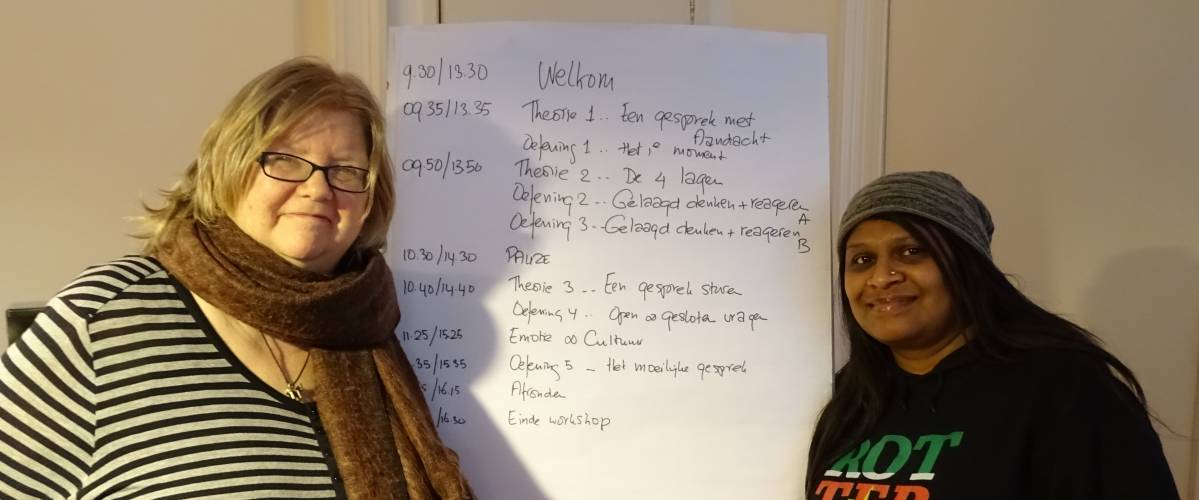 9.30/13.30 Welkom
09.35/13.35 Theorie 1.. Een gesprek met
Aandacht
Oefening 1.. Het 1e moment
09.50/13.50 Theorie 2.. De 4 lagen
Oefening 2.. Gelaagd denken + reageren
A
Oefening 3.. Gelaagd denken + reageren
B
10.30/14.30 PAUZE
10.40/14.40 Theorie 3.. Een gesprek sturen
Oefening 4.. Open ∞ gesloten vragen
11.25/15.25 Emotie ∞ Cultuur
.35/15.35 Oefening 5 - Het moeilijke gesprek
5/16.15 Afronden
/16.30 Einde workshop
ROT
TER